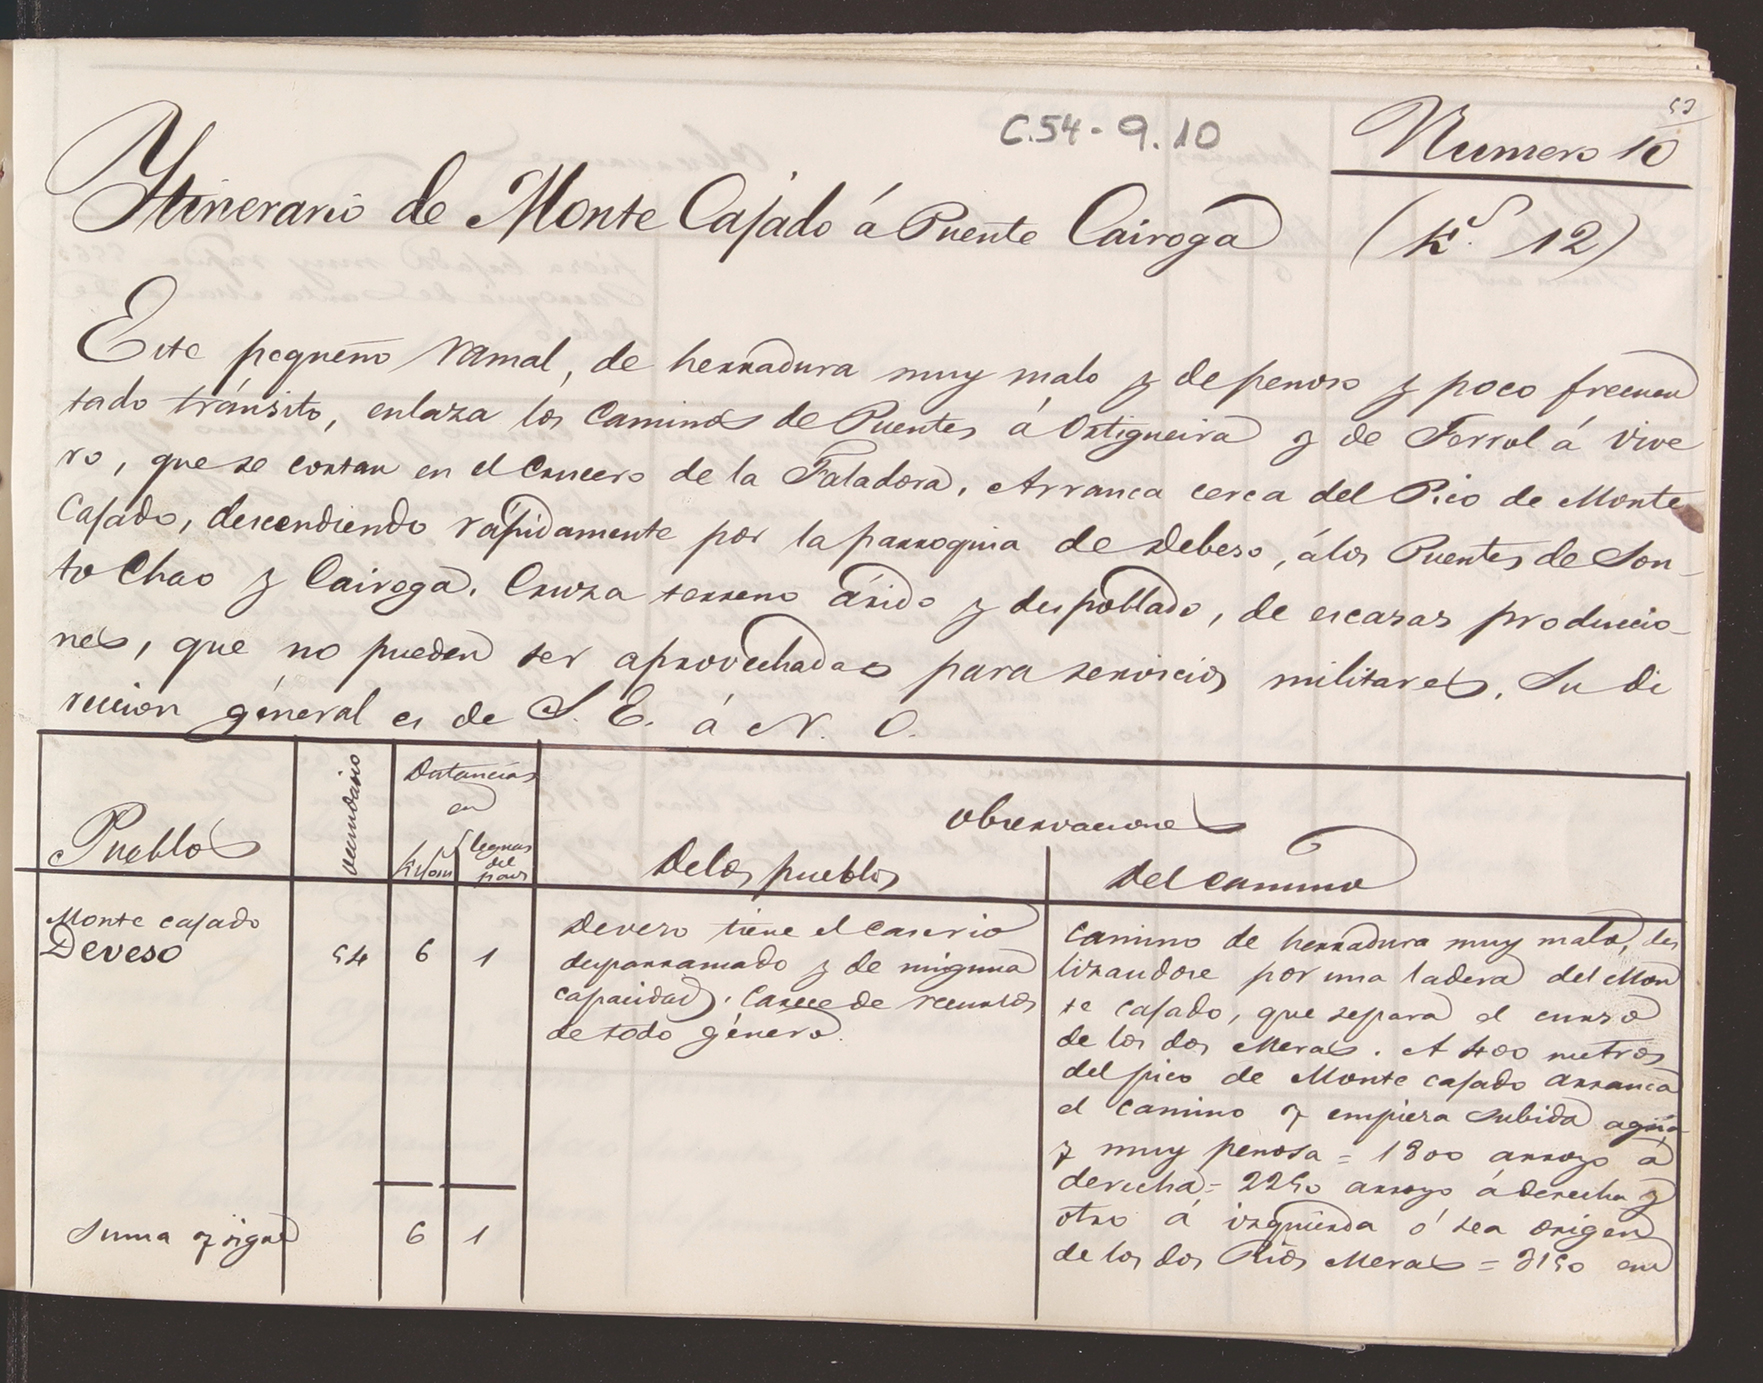 53
C.54-9.10
Numero 10
Ytinerario de Monte Cajado á Puente Cairoga (Ks. 12)
Este pequeño ramal, de herradura muy malo y de penoso y poco frecuen
tado tránsito, enlaza los Caminos de Puentes á Ortigueira y de Ferrol á Vive
ro, que se cortan en el Crucero de la Faladora. Arranca cerca del Pico de Monte
Cajado, descendiendo rápidamente por la parroquia de Debeso, á los Puentes de Son-
to Chao y Cairoga. Cruza terreno árido y despoblado, de escasas produccio-
nes, que no pueden ser aprovechadas para servicios militares. Su di
reccion géneral es de S. E. á N. O.
Pueblos
vecindario
Distancias
en
Kilom
leguas
del
pais
Observaciones
De los pueblos
Del camino
Monte cajado
Deveso
54
6
1
Deveso tiene el caserio
desparramado y de ninguna
capacidad. Carece de recursos
de todo género.
Camino de herradura muy malo, des
lizandose por una ladera del Mon
te cajado, que separa el curso
de los dos Meras. A 400 metros
del pico de Monte cajado arranca
el camino y empieza subida agria
y muy penosa = 1300 arroyo á
derecha = 2250 arroyo á derecha y
otro á izquierda ó sea origen
de los dos Rios Meras = 3150 en
Suma y sigue
6
1